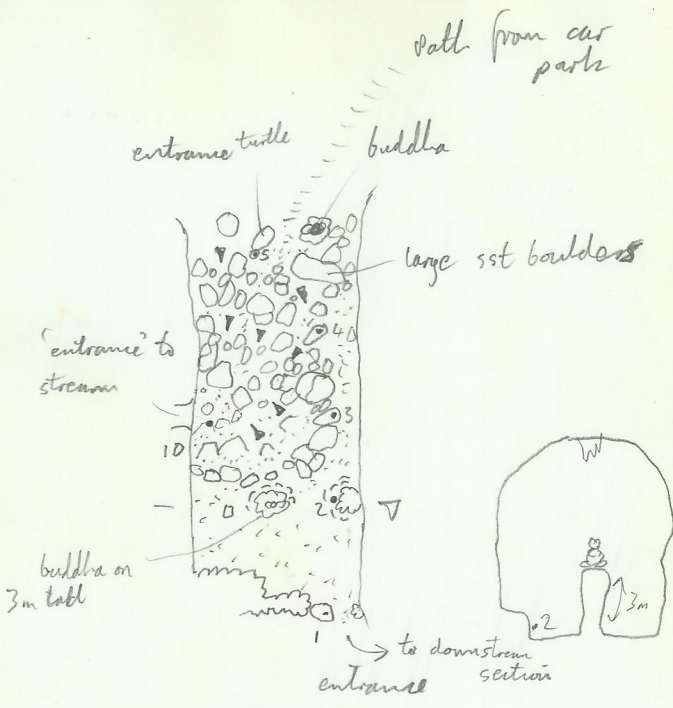 Path from car
park
entrance turtle
buddha
5
large sst boulders
4
'entrance' to
stream
3
10
2
buddha on
3m tall
3m
2
1
to downstream
section
entrance